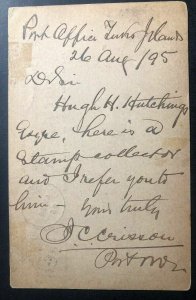 Post Office Turks Islands
26 Aug /95
D Sir
Hugh H. Hutchings
Esqre, here is a
stamp collector
and I refer you to
him – yours truly
J. C. Crisson